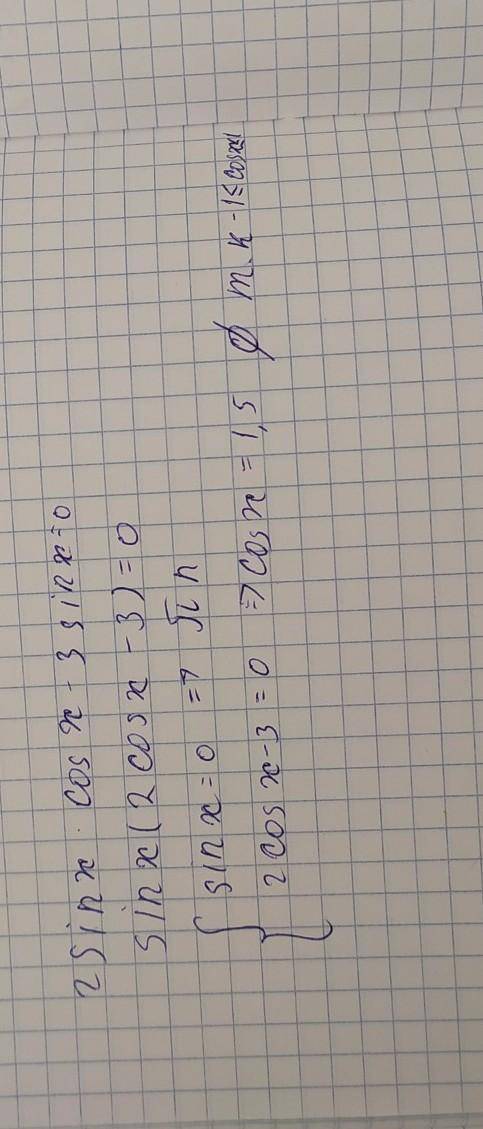 2 sin x · cos x - 3 sin x = 0
sin x (2 cos x - 3) = 0
{ sin x = 0 => πn
2 cos x - 3 = 0 => cos x = 1,5 ∅ т.к -1 ≤ cos x ≤ 1